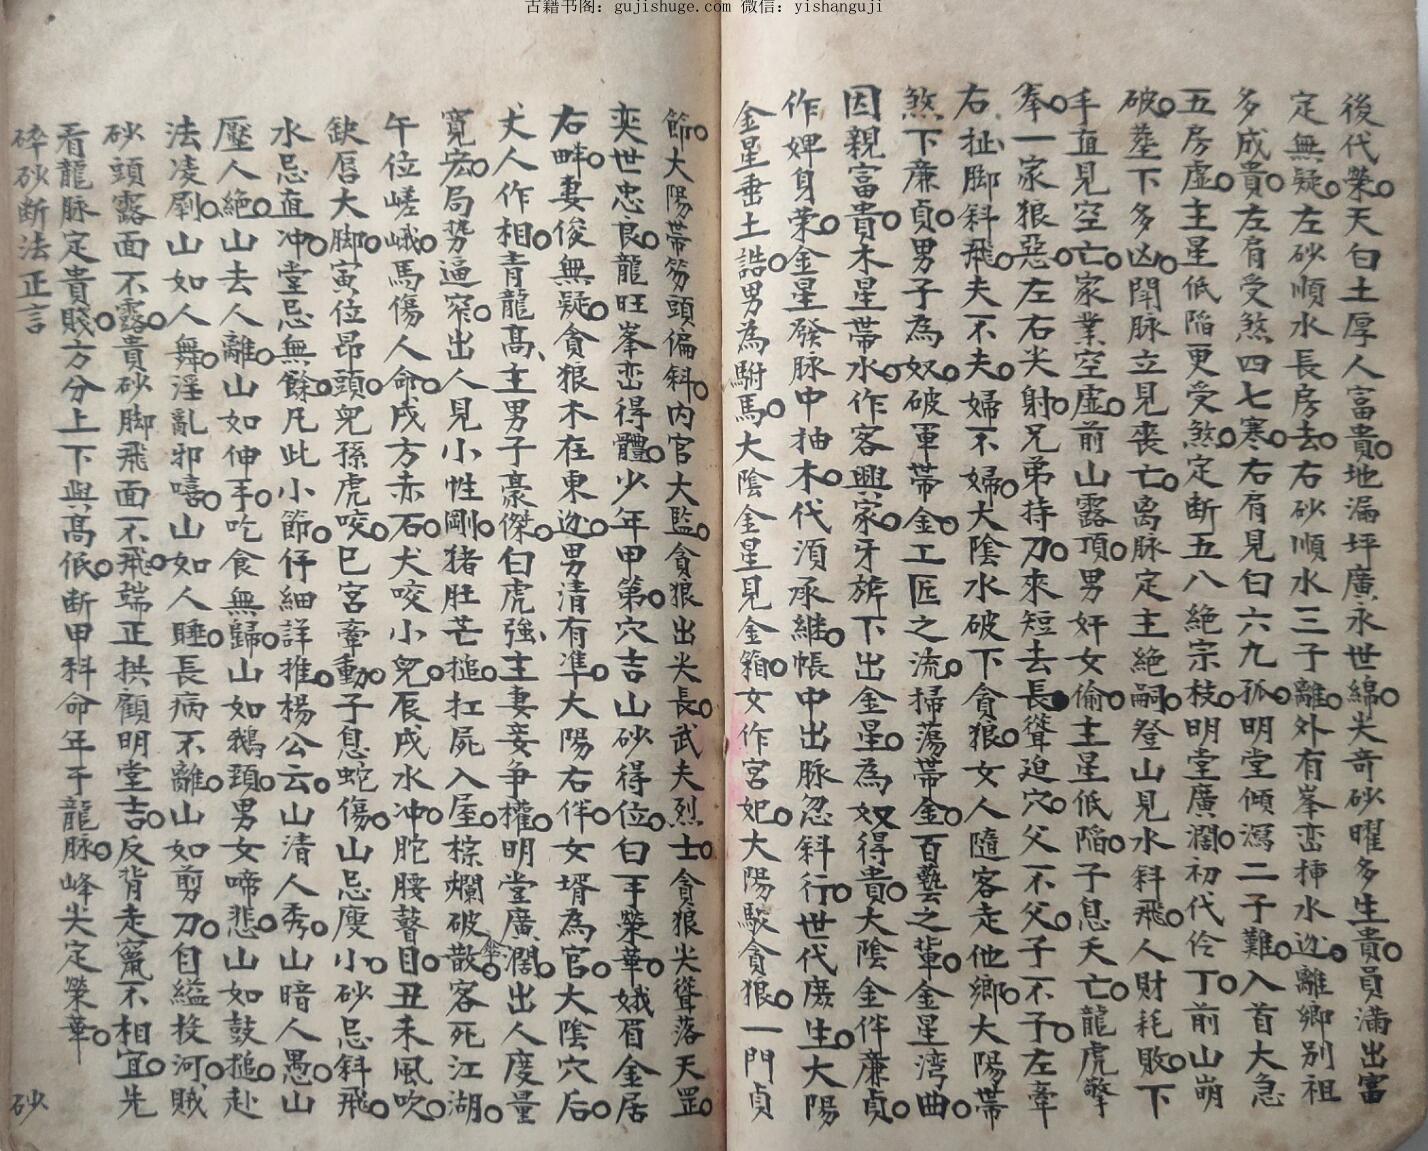 古籍书阁：gujishuge.com 微信：yishanguji
後代榮天白土厚人富貴地漏坪廣永世綿尖奇砂曜多生貴員滿出富
定無疑左砂順水長房去右砂順水三子離外有峯峦揷水迯離鄉別祖
多成貴左肩受煞四七寒右肩見白六九孤明堂傾瀉二子難入首大急
五房虛主星低陷更受煞定断五八絕宗枝明堂廣濶初代伶丁前山崩
破塟下多凶閗脉立見丧亡离脉定主絕嗣登山見水斜飛人財耗敗下
手直見空亡家業空虛前山露頂男奸女偷主星低陷子息夭亡龍虎擎
拳一家狠惡左右尖射兄弟持刀來短去長聳迫穴父不父子不子左牽
右扯脚斜飛夫不夫婦不婦大陰水破下貪狼女人隨客走他鄉大陽帶
煞下廉貞男子為奴破軍帶金工匠之流掃蕩帶金百藝之輩金星湾曲
因親富貴木星帶水作客興家牙旂下出金星為奴得貴大陰金伴廉貞
作婢身榮金星發脉中抽木代湏承継帳中出脉忽斜行世代庻生大陽
金星垂土誥男為駙馬大陰金星見金箱女作宮妃大陽駁貪狼一門貞
節大陽帶笏頭偏斜內官大監貪狼出尖長武夫烈士貪狼尖聳落天罡
奕世忠良龍旺峯峦得體少年甲第穴吉山砂得位白手榮華娥眉金居
右畔妻俊無疑貪狼木在東迯男清有凖大陽右伴女壻為官大陰穴后
犬人作相青龍高主男子豪傑白虎強主妻妾争權明堂廣濶出人度量
寬宏局势逼窄出人見小性剛猪肚芒槌扛屍入屋棕爛破散傘客死江湖
午位嵯峨馬傷人命戌方赤石犬咬小兒辰戌水冲肶腰瞽目丑未風吹
缺唇大脚寅位昂頭兒孫虎咬巳宮牽動子息蛇傷山忌廋小砂忌斜飛
水忌直冲堂忌無餘凡此小節仔細詳推楊公云山清人秀山暗人愚山
壓人絕山去人離山如伸手吃食無歸山如鵝頚男女啼悲山如鼓槌赴
法凌剮山如人舞淫亂邪嘻山如人睡長病不離山如剪刀自縊投河賊
砂頭露面不露貴砂脚飛面不飛端正拱顧明堂吉反背走竄不相宜先
看龍脉定貴賤方分上下與高低断甲科命年于龍脉峰尖定榮華
碎砂断法正言 砂